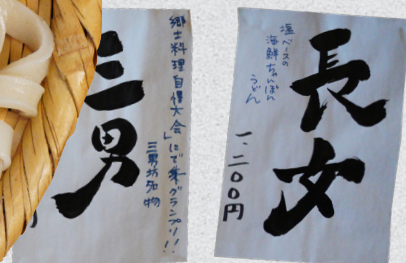 長女
塩ベースの
海鮮ちゃんぽん
うどん
一、二〇〇円
三男
郷土料理自慢大会
にて準グランプリ!!
三男坊名物
円